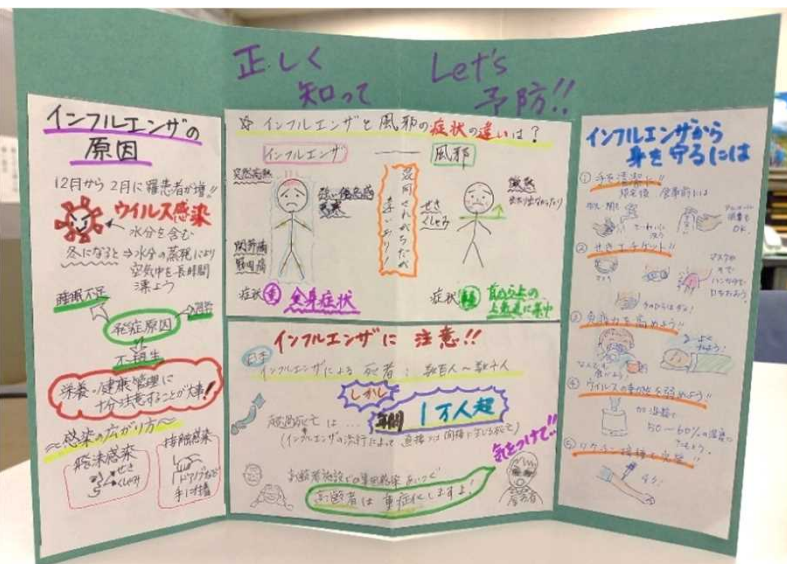 正しく
知って
Let's
予防!!
インフルエンザの
原因
12月から2月に罹患者が増!!
ウイルス感染
水分を含む
冬になると→水分の蒸発により
空気中を長時間
漂よう
睡眠不足
発症原因
不養生
栄養や健康管理に
十分注意することが大事!
〜感染の広がり方〜
飛沫感染
せき
くしゃみ
接触感染
ドアノブなど
手に付着
☆インフルエンザと風邪の症状の違いは?
インフルエンザ
風邪
突然高熱
強い倦怠感
悪寒
関節痛
筋肉痛
混同されがちだが
違いあり!
せき
くしゃみ
微熱
症状 重 全身症状
症状 軽 首から上の
上気道に集中
インフルエンザに注意!!
日本
インフルエンザによる死者:数百人〜数千人
しかし
超過死亡は…年間1万人超
(インフルエンザの流行によって直接・間接に生じる死亡)
気をつけて!!
高齢者施設での集団感染
高齢者は重症化しますよ!
インフルエンザから
身を守るには
① 手を清潔に!!
帰宅後 食事前には
消毒も
OK
② せきエチケット!!
マスク
ハンカチで
③ 免疫力を高めよう!!
④ ウイルスの
加湿器で
50〜60%の湿度に
⑤ ワクチン接種も